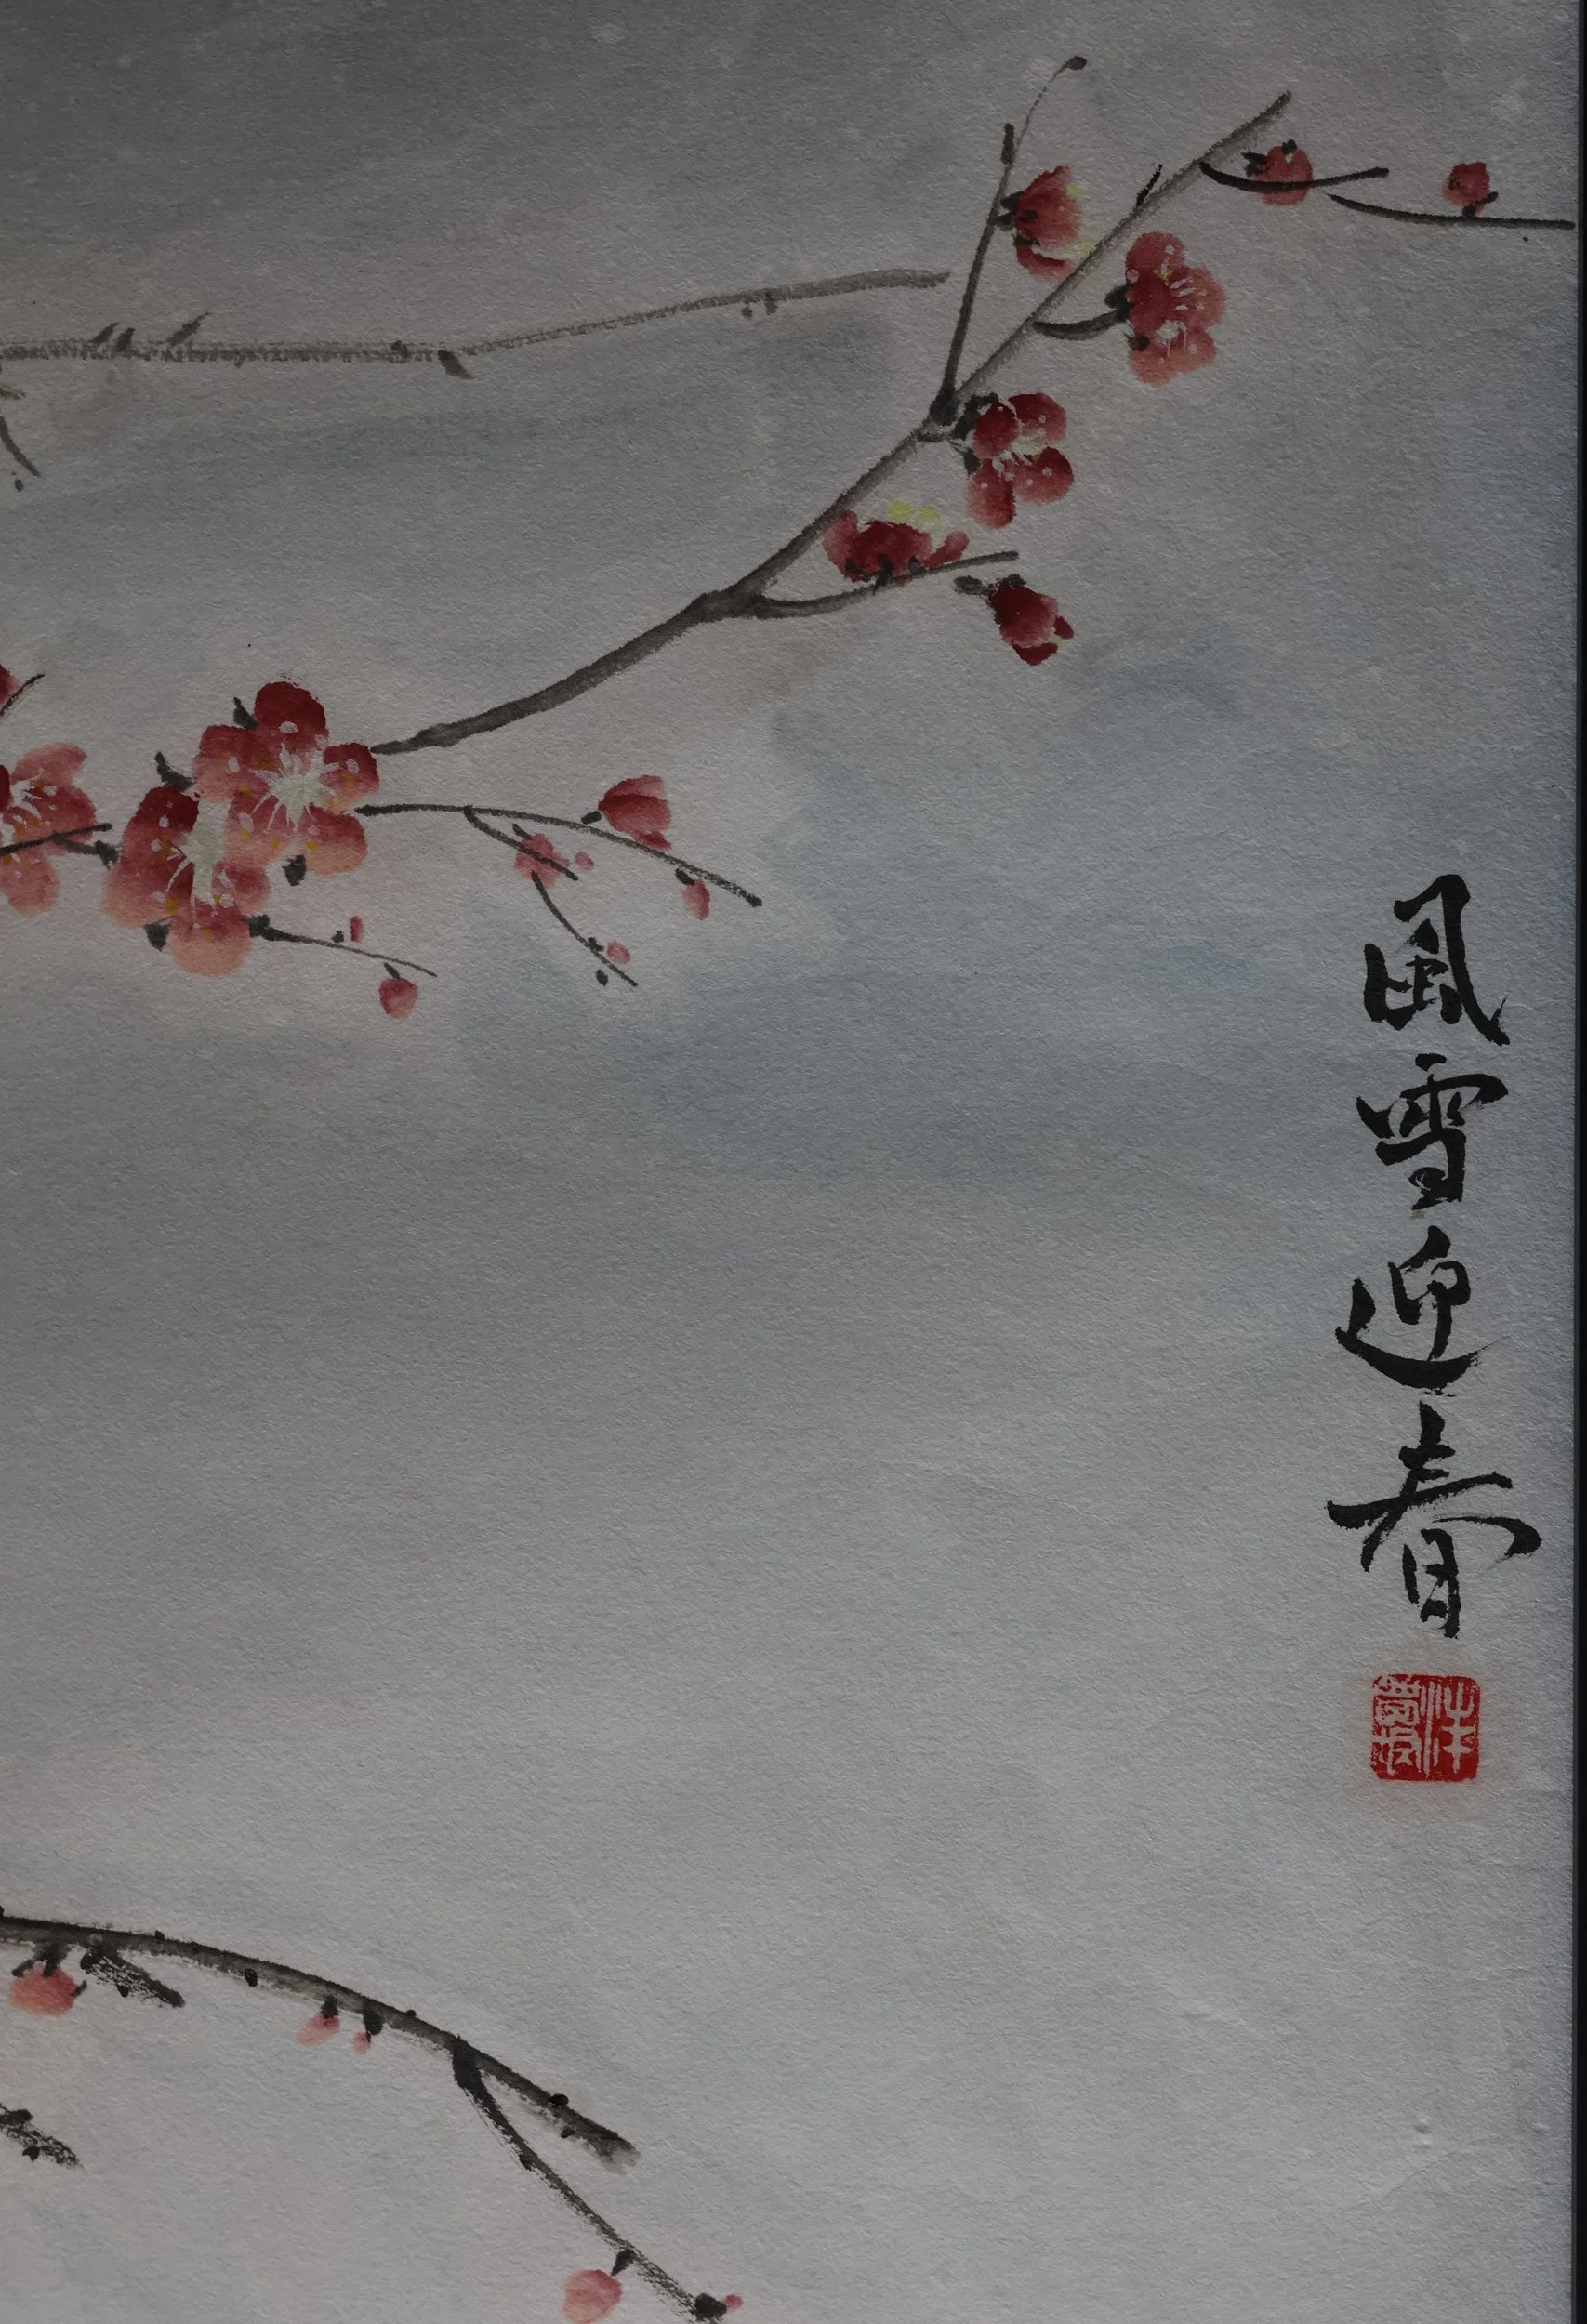 風雪迎春